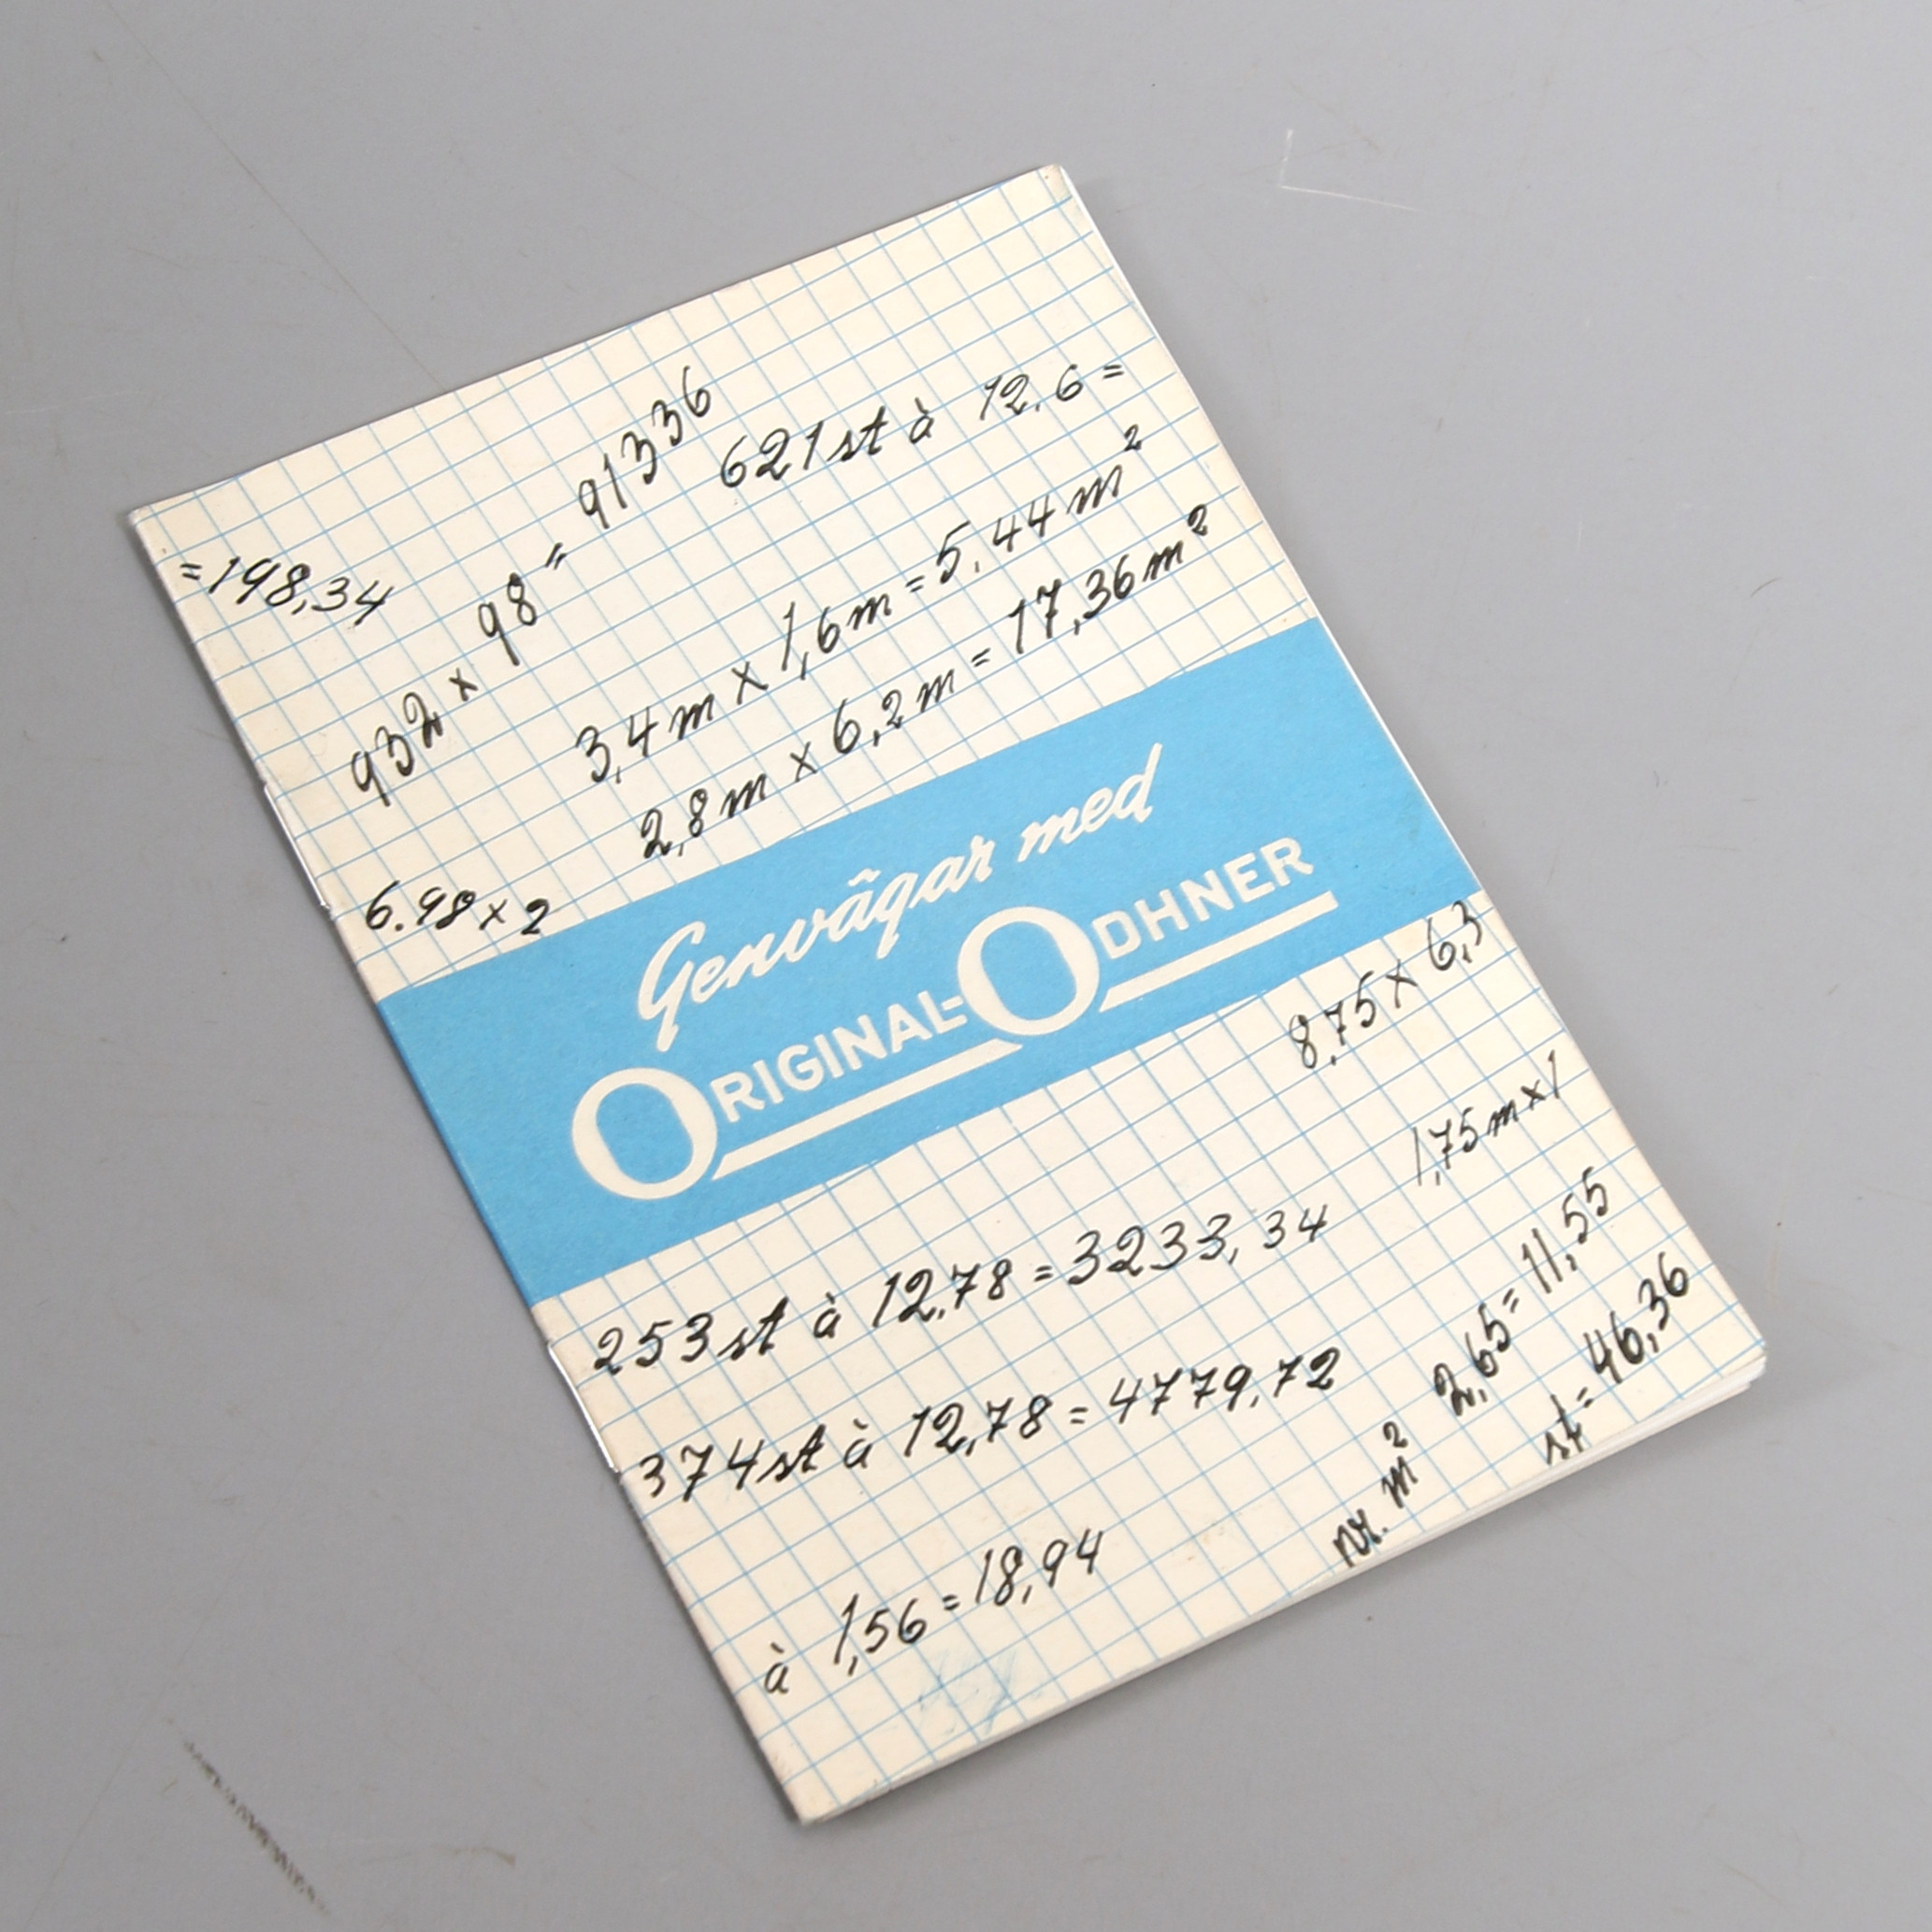 =198,34
932 x 98 = 91336
621 st à 12.6 =
3,4 m x 1,6 m = 5,44 m²
2,8 m x 6,2 m = 17,36 m²
6.98 x 2
Genvägar med
ORIGINAL-ODHNER
8,75 x 6,3
1,75 m x 1
253 st à 12,78 = 3233,34
374 st à 12,78 = 4779,72
m² 2,65 = 11,55
st = 46,36
à 1,56 = 18,94